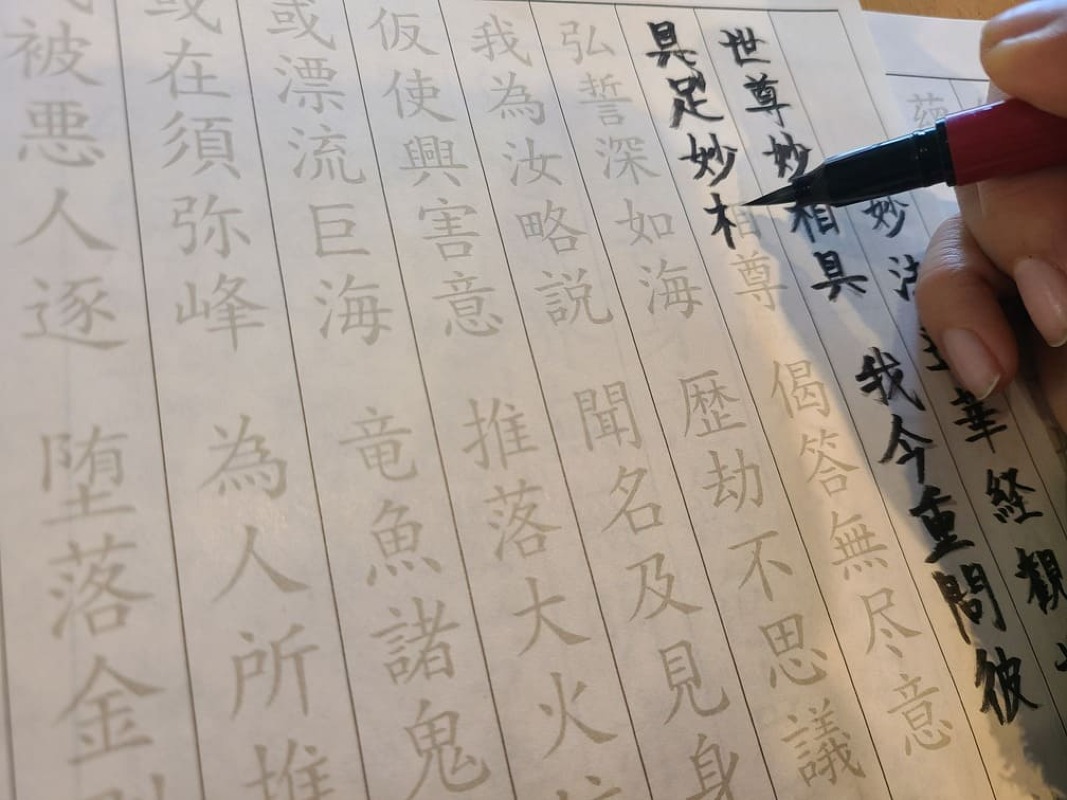 妙法華経観
世尊妙相具 我今重問彼
具足妙相尊 偈答無尽意
弘誓深如海 歴劫不思議
我為汝略説 聞名及見身
仮使興害意 推落大火
或漂流巨海 竜魚諸鬼
或在須弥峰 為人所推
被悪人逐 堕落金